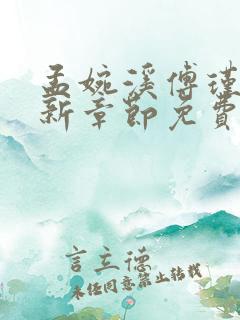 孟婉溪傅瑾
新章节免费
言立德
未经同意禁止转载